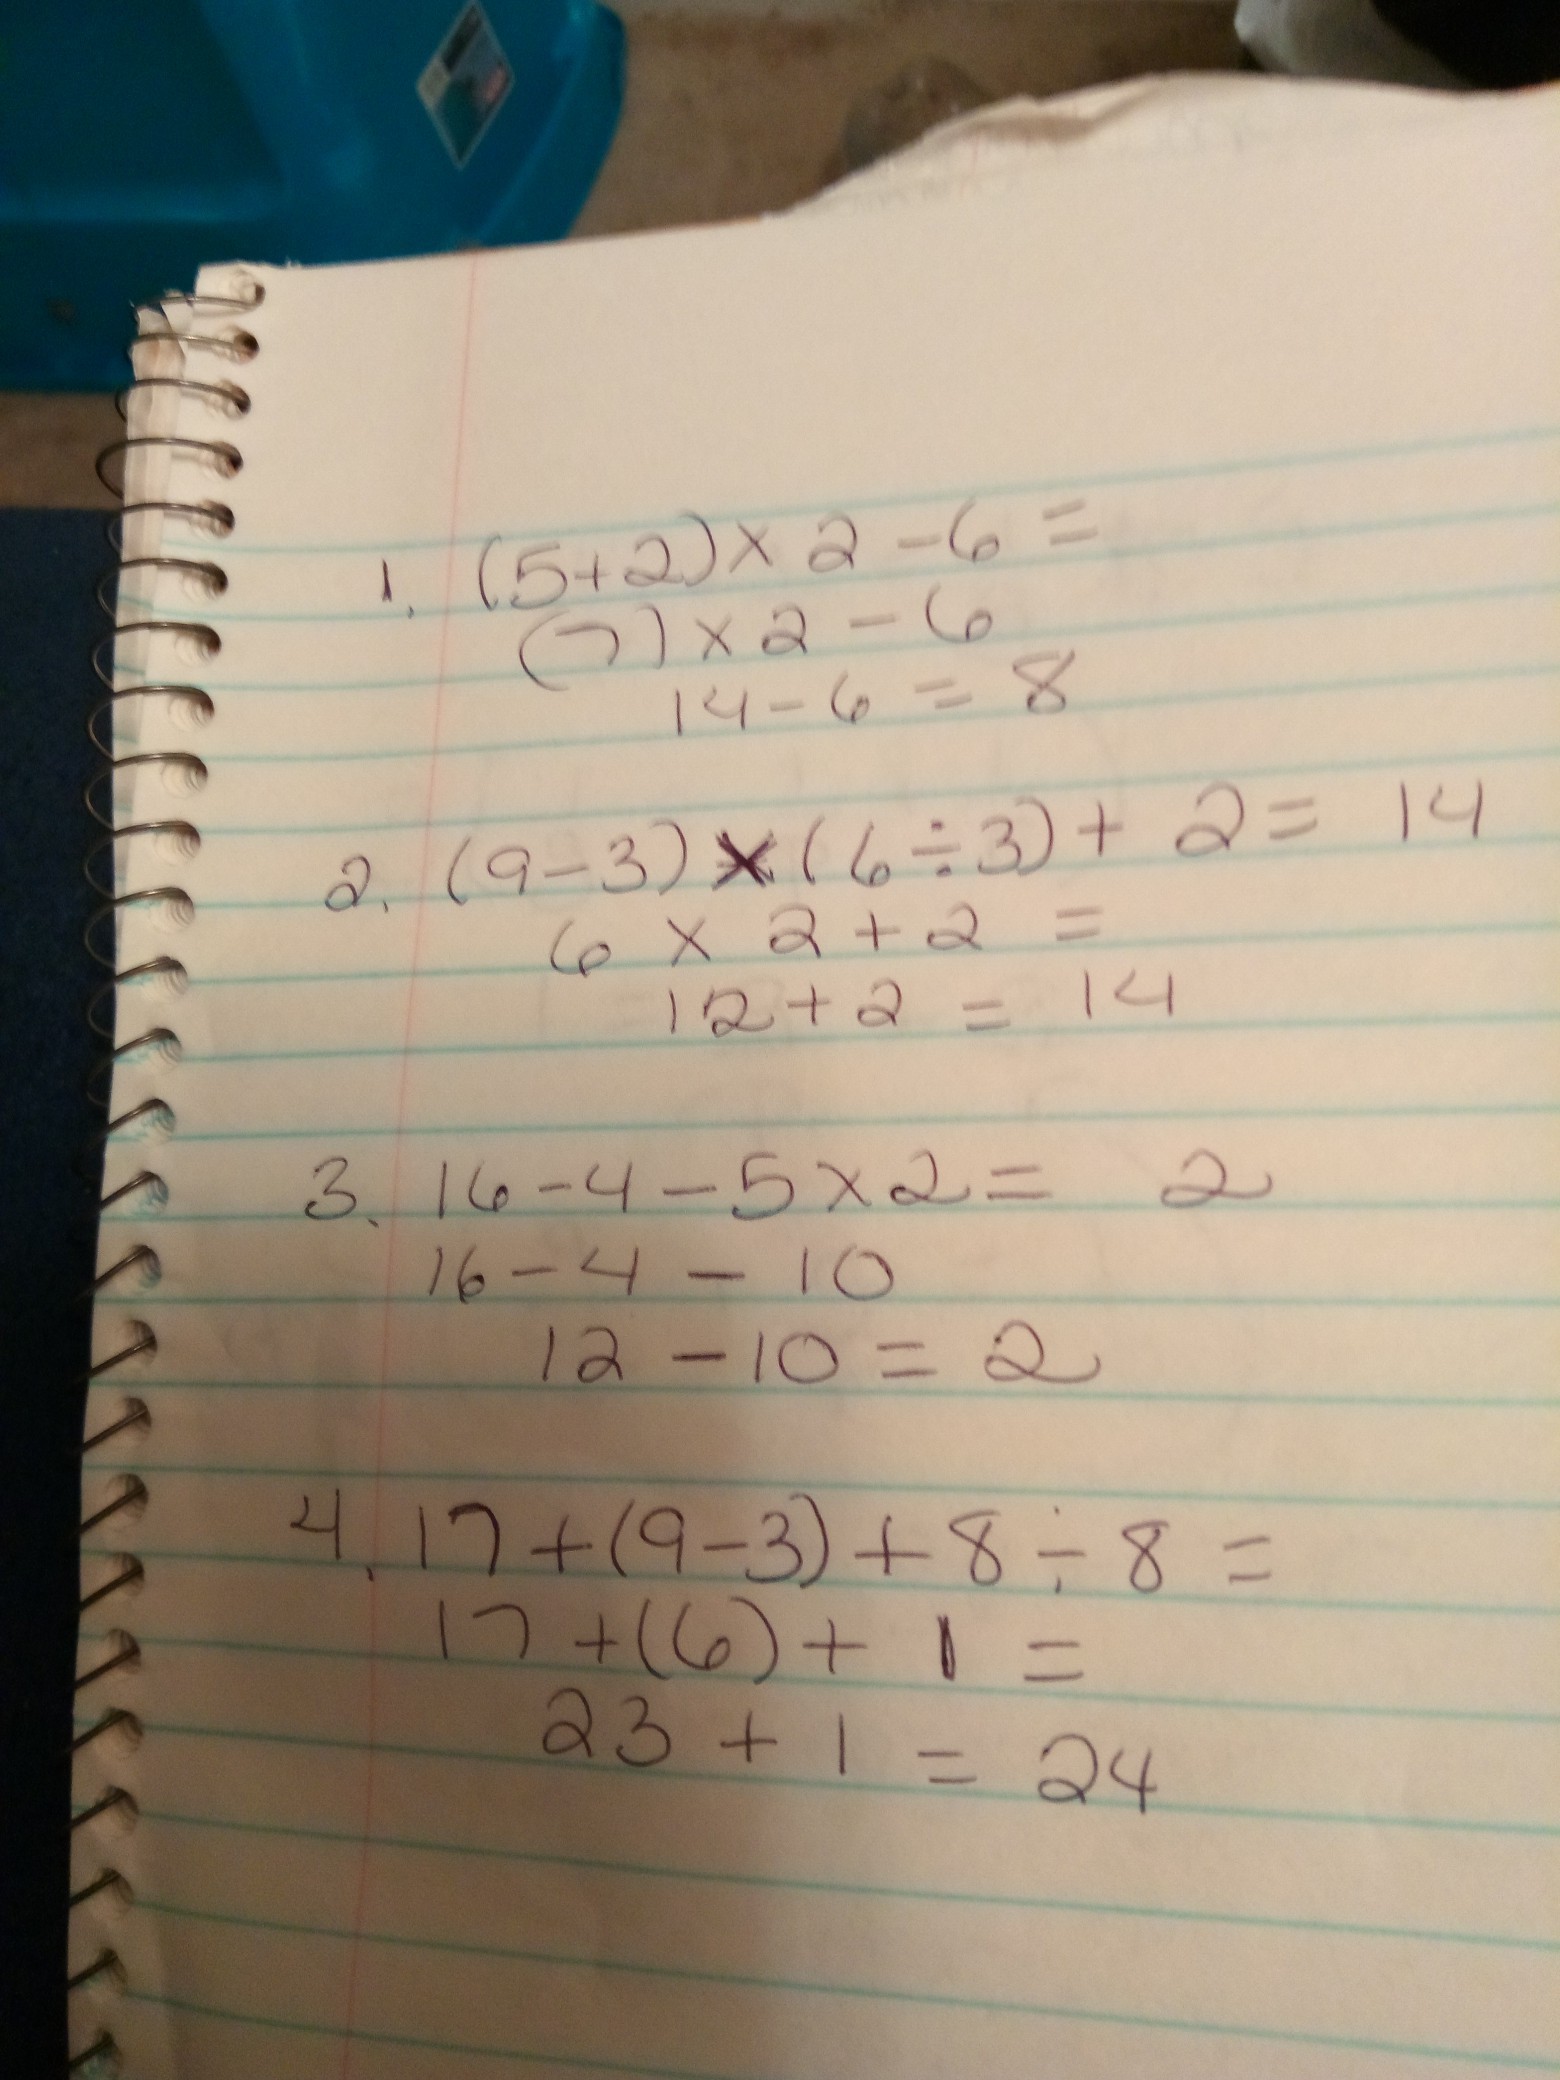 1. (5+2)×2-6=
(7)×2-6
14-6=8
2. (9-3)×(6÷3)+2=14
6×2+2=
12+2=14
3. 16-4-5×2=2
16-4-10
12-10=2
4. 17+(9-3)+8÷8=
17+(6)+1=
23+1=24